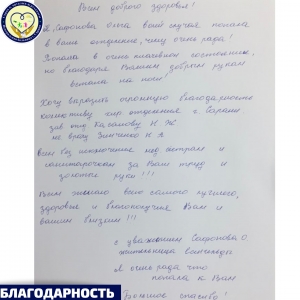 Всем доброго здоровья!
Я Сафонова Ольга волей случая попала
в ваше отделение, чему очень рада!
Попала в очень тяжёлом состоянии,
но благодаря Вашим добрым рукам
встала на ноги!
Хочу выразить огромную благодарность
коллективу хир отделения г. Сарани
зав отд Касымову Н Ж
врачу Зинченко К Я
Всем без исключения мед сёстрам и
санитарочкам за Ваш труд и
золотые руки!!!
Всем желаю всего самого лучшего,
здоровья и благополучия Вам и
вашим близким!!!
с уважением Сафонова О
жительница
Я очень рада что
попала к Вам
Большое спасибо!
БЛАГОДАРНОСТЬ